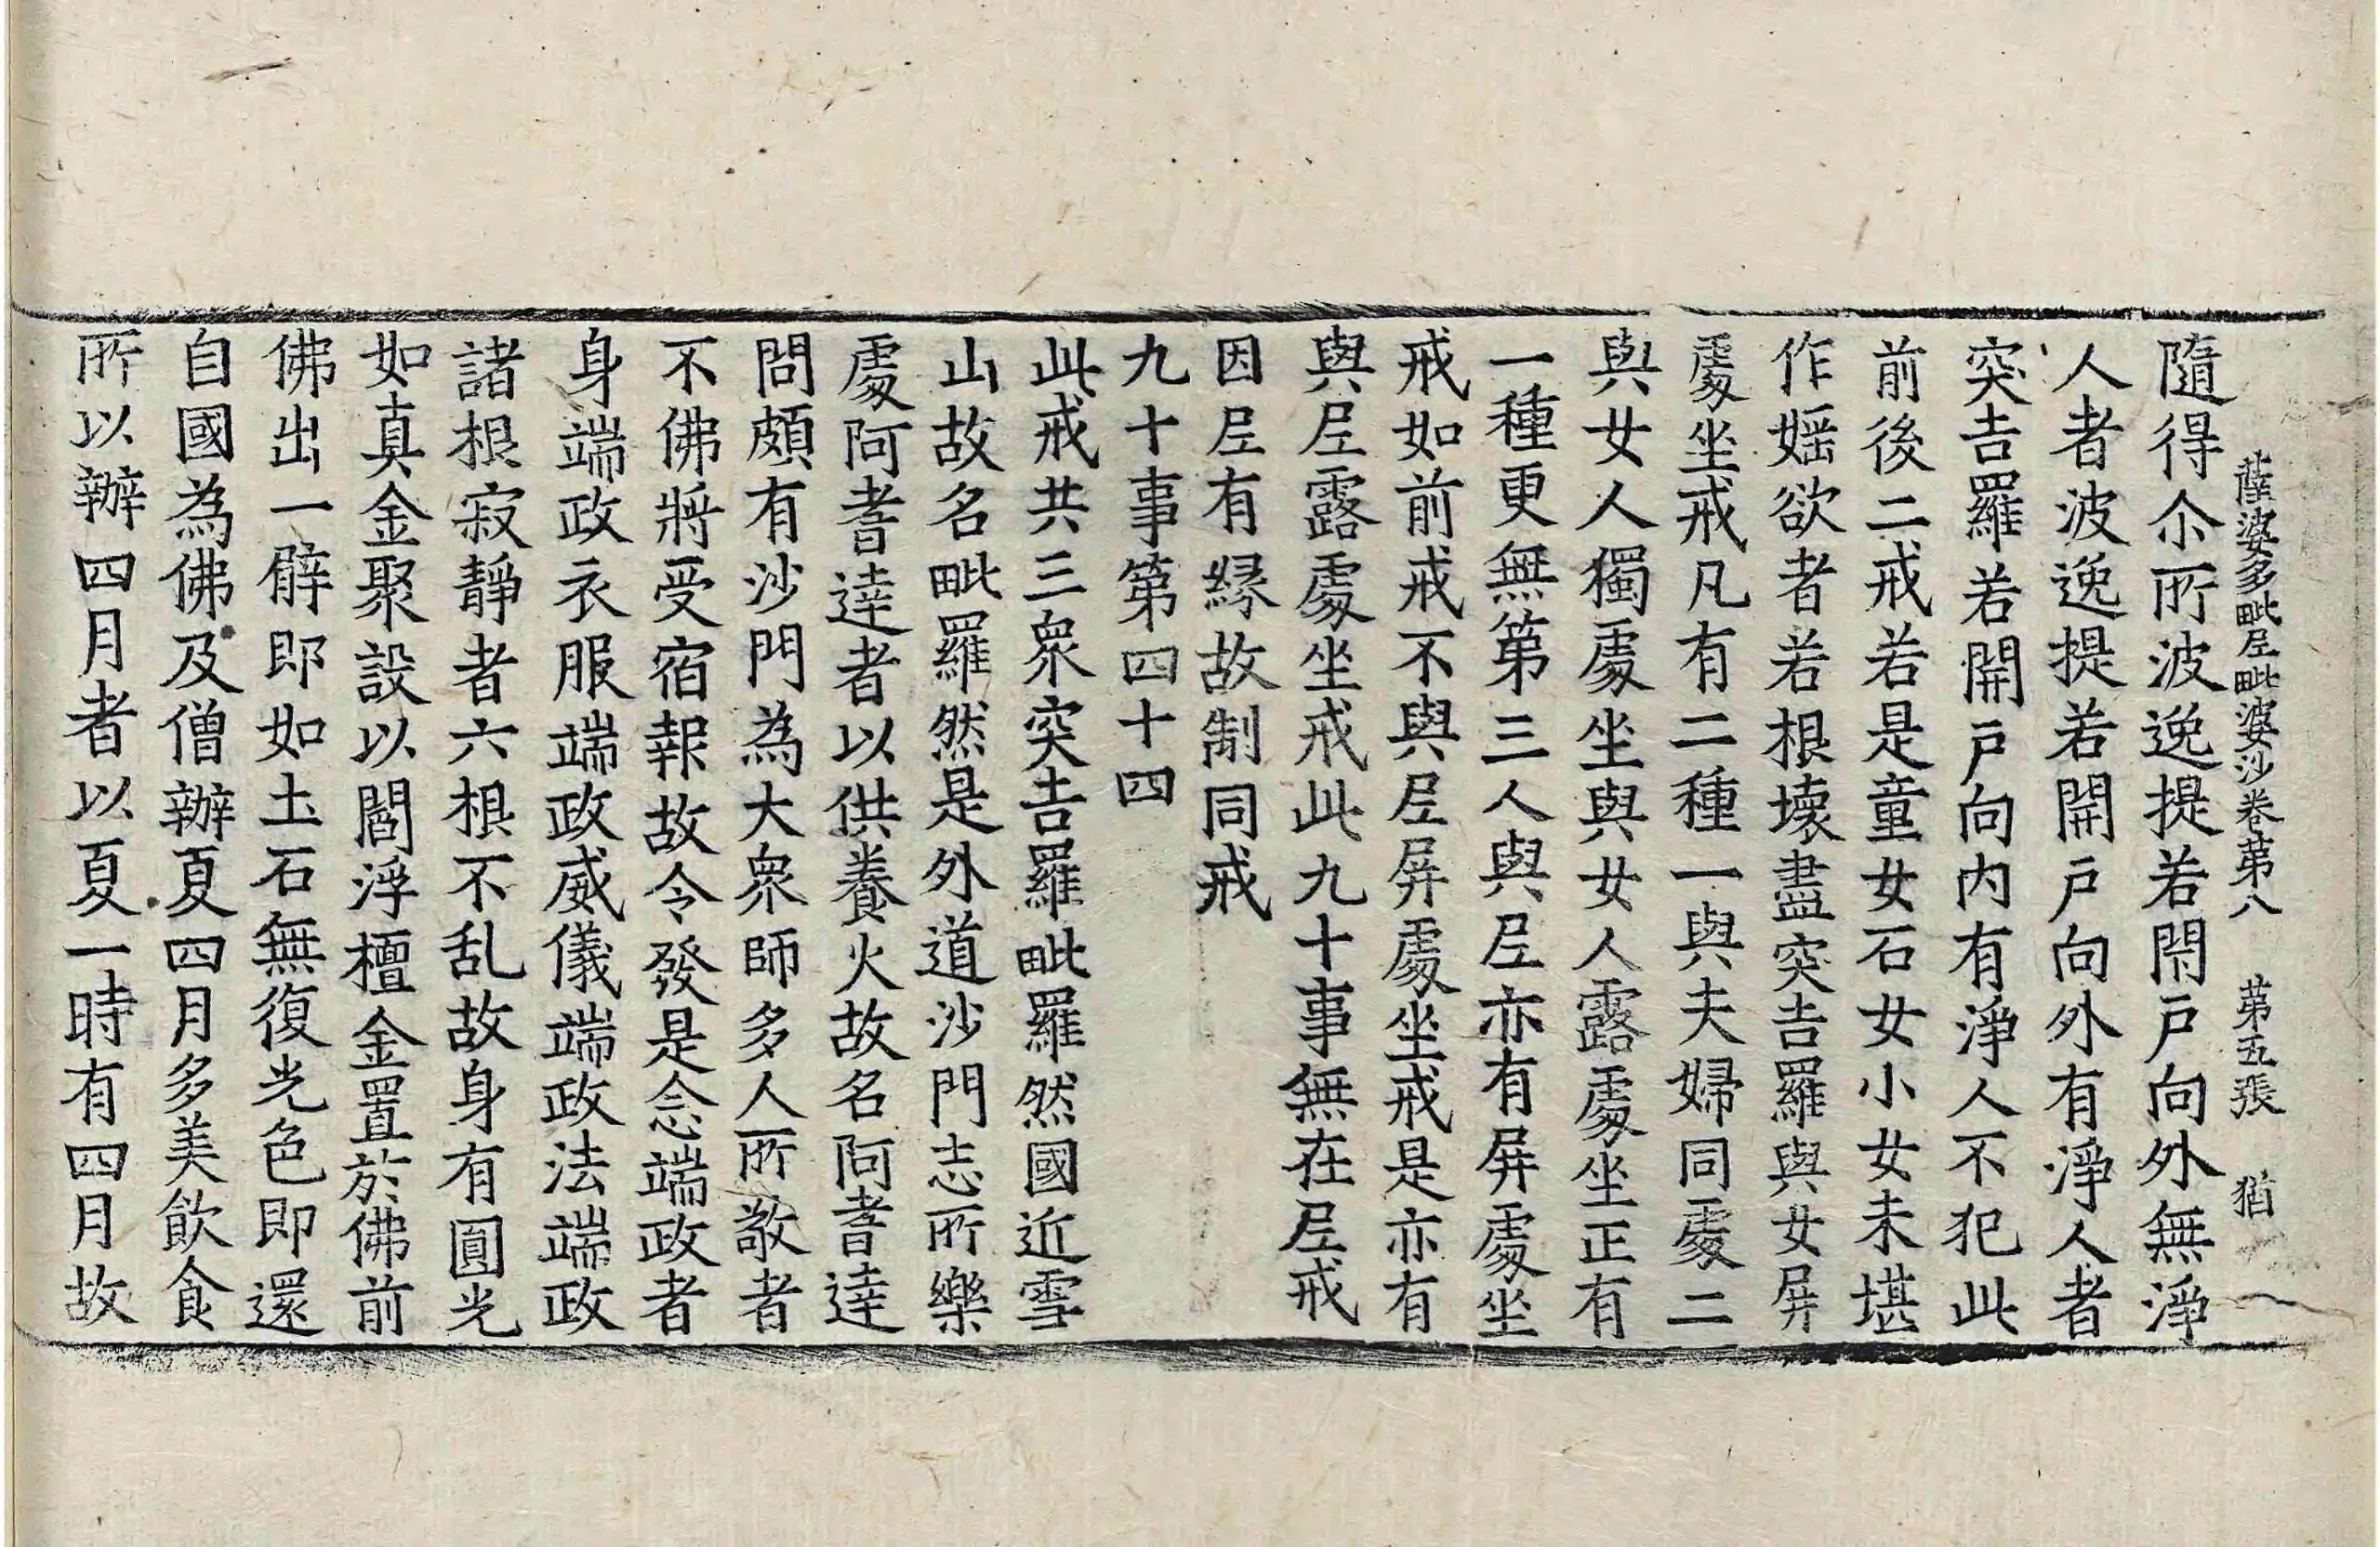 薩婆多毗尼毗婆沙卷第八 第五張 猶
隨得尒所波逸提若閇戸向外無淨
人者波逸提若開戸向外有淨人者
突吉羅若開戸向内有淨人不犯此
前後二戒若是童女石女小女未堪
作婬欲者若根壞盡突吉羅與女屏
處坐戒凡有二種一與夫婦同處二
與女人獨處坐與女人露處坐正有
一種更無第三人與尼亦有屏處坐
戒如前戒不與尼屏處坐戒是亦有
與尼露處坐戒此九十事無在尼戒
因尼有緣故制同戒
九十事第四十四
此戒共三衆突吉羅毗羅然國近雪
山故名毗羅然是外道沙門志所樂
處阿耆達者以供養火故名阿耆達
問頗有沙門為大衆師多人所敬者
不佛將受宿報故令發是念端政者
身端政衣服端政威儀端政法端政
諸根寂靜者六根不乱故身有圓光
如真金聚設以閻浮檀金置於佛前
佛出一臂即如土石無復光色即還
自國為佛及僧辦夏四月多美飲食
所以辦四月者以夏一時有四月故